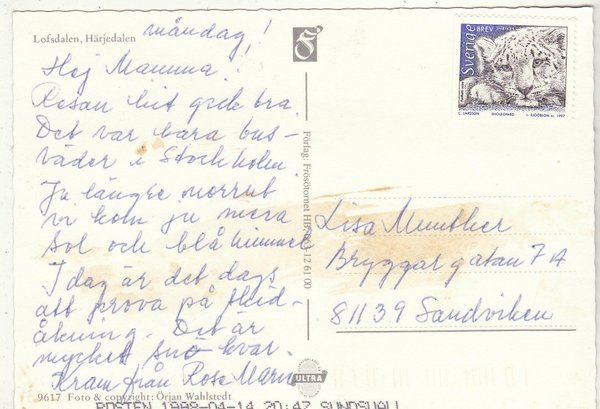 Lofsdalen, Härjedalen
måndag!
Hej Mamma!
Resan hit gick bra.
Det var bara bus-
väder i Stockholm.
Ju längre norrut
vi kom ju mera
sol och blå himmel
I dag är det dags
att prova på skid-
åkning. Det är
mycket snö kvar.
Kram från Rose Marie
9617 Foto & copyright: Örjan Wahlstedt
Förlag: Frösötornet HB, 063-12 61 00
ULTRA
POSTEN 1998-04-14 20:47 SUNDSVALL
Sverige BREV
C. LARSSON SNÖLEOPARD L. SJÖÖBLOM sc. 1997
Lisa Munther
Bryggargatan 7A
81139 Sandviken